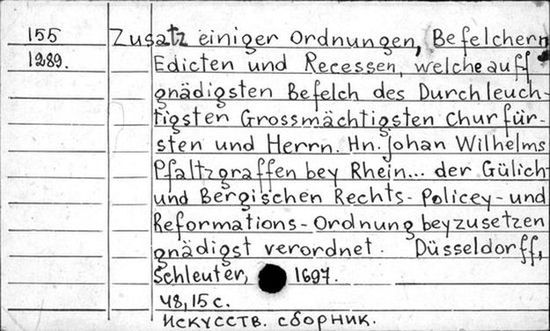 155 Zusatz einiger Ordnungen, Befelchern
1289. Edicten und Recessen, welche auff
gnädigsten Befelch des Durchleuch-
tigsten Grossmächtigsten Churfür-
sten und Herrn. Hn. Johan Wilhelms
Pfaltzgraffen bey Rhein... der Gülich
und Bergischen Rechts- Policey- und
Reformations-Ordnung beyzusetzen
gnädigst verordnet. Düsseldorff,
Schleuter, 1697.
48, 15 с.
Искусств. сборник.